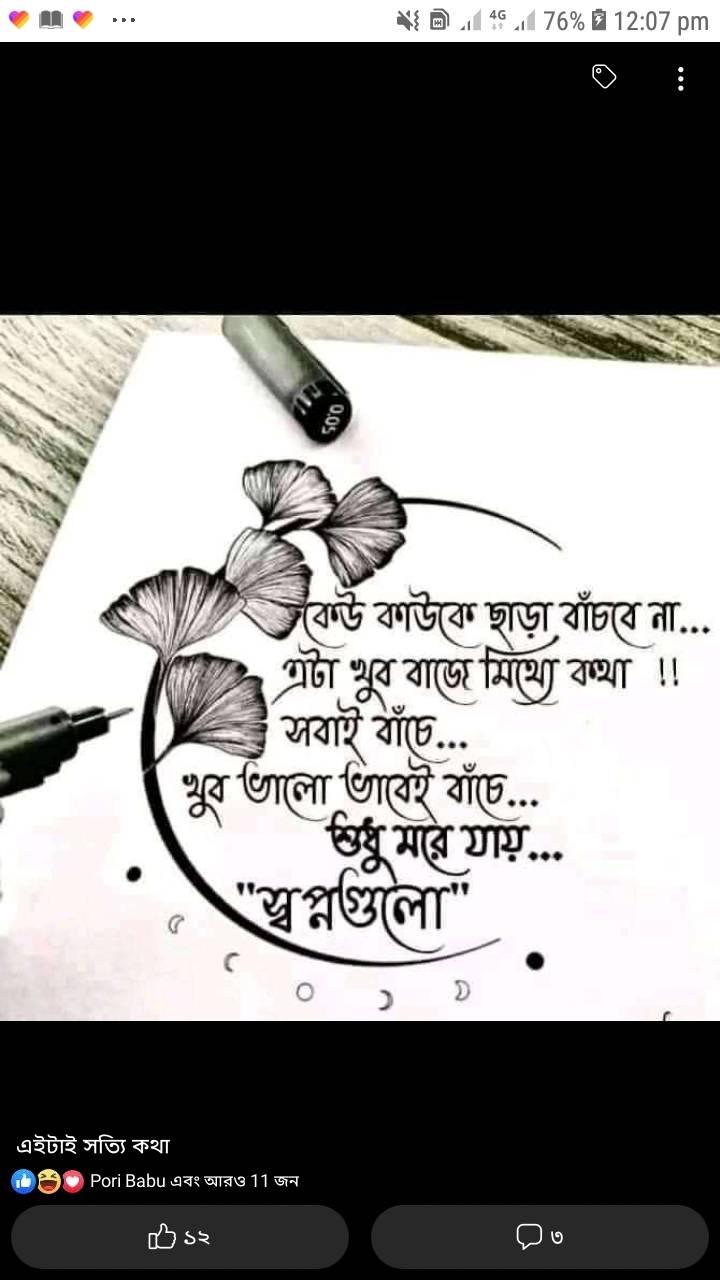 76% 12:07 pm
4G
0.05
কেউ কাউকে ছাড়া বাঁচবে না...
এটা খুব বাজে মিথ্যে কথা !!
সবাই বাঁচে...
খুব ভালো ভাবেই বাঁচে...
শুধু মরে যায়...
"স্বপ্নগুলো"
এইটাই সত্যি কথা
Pori Babu এবং আরও 11 জন
১২
৩